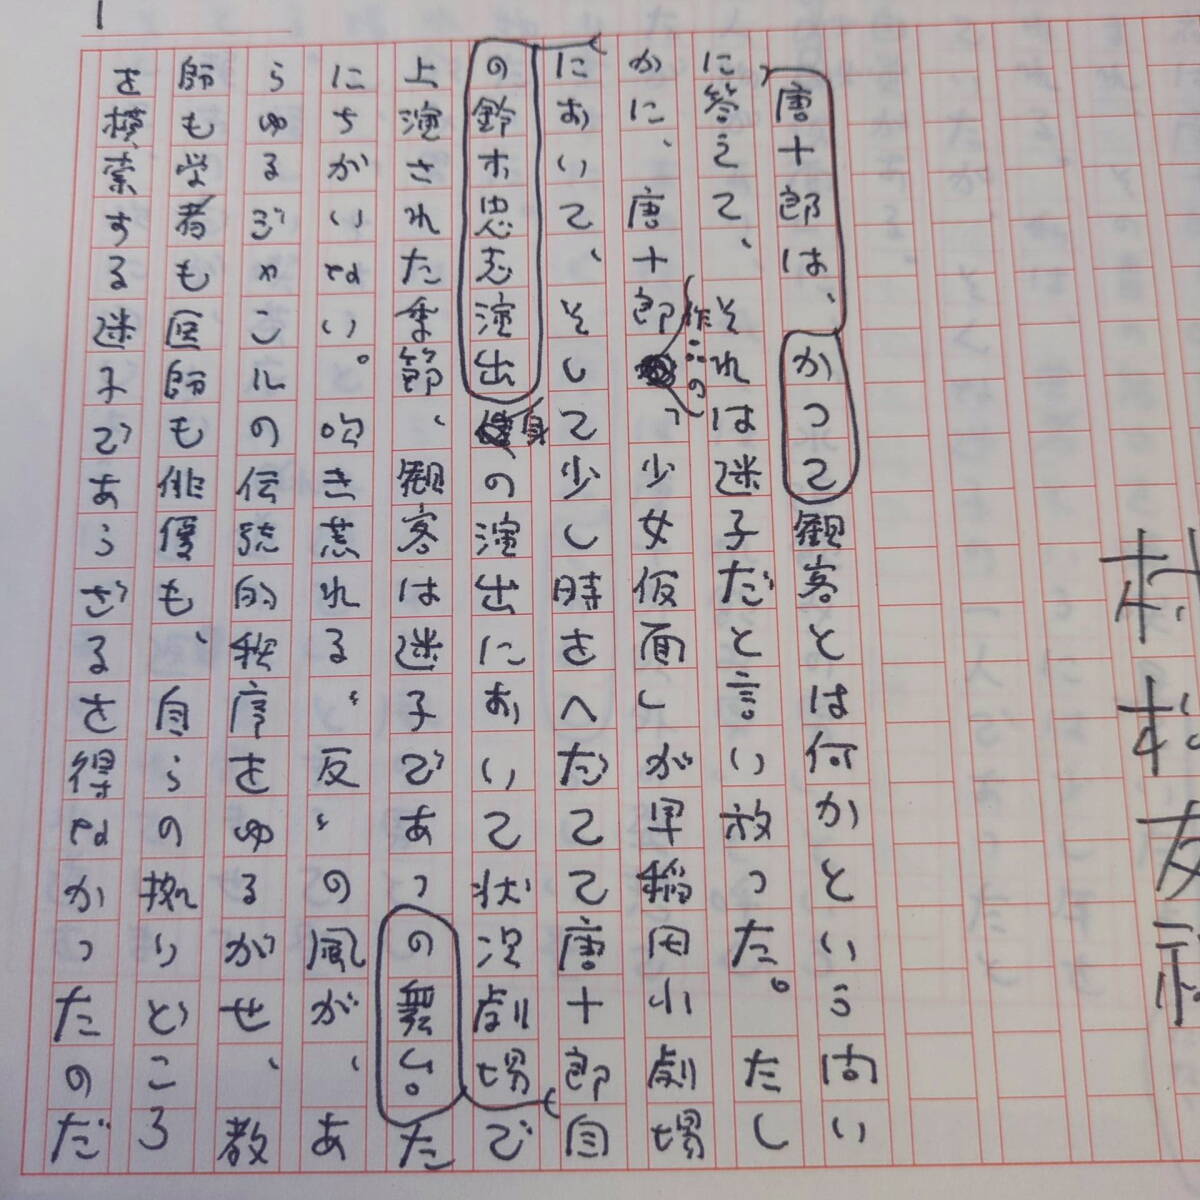 唐十郎は、かつて観客とは何かという問い
に答えて、それは迷子だと言い放った。たし
かに、唐十郎作「少女仮面」が早稲田小劇場
において、そして少し時をへだてて唐十郎自
の鈴木忠志演出
身の演出において状況劇場で
上演された季節、観客は迷子であった
の舞台。
にちがいない。吹き荒れる〝反〟の風が、あ
らゆるジャンルの伝統的秩序をゆるがせ、教
師も学者も医師も俳優も、自らの拠りどころ
を模索する迷子であらざるを得なかったのだ